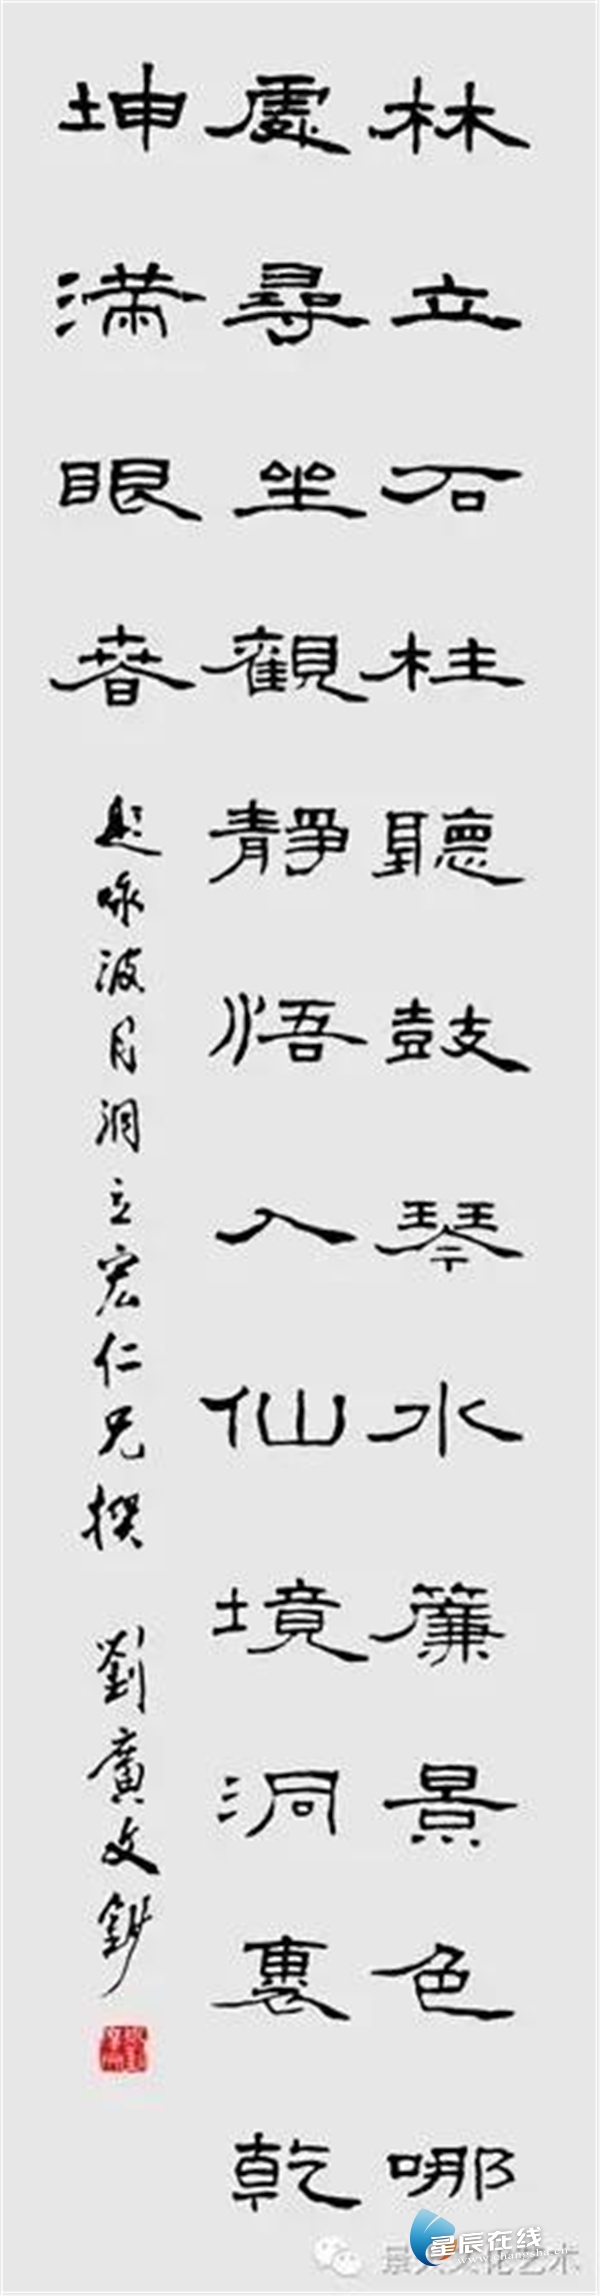 林立石柱聽鼓琴水簾景色哪
處尋坐觀靜悟入仙境洞裏乾
坤滿眼春
題咏波月洞立宏仁兄撰 劉廣文鈔
星辰在线
www.changsha.cn